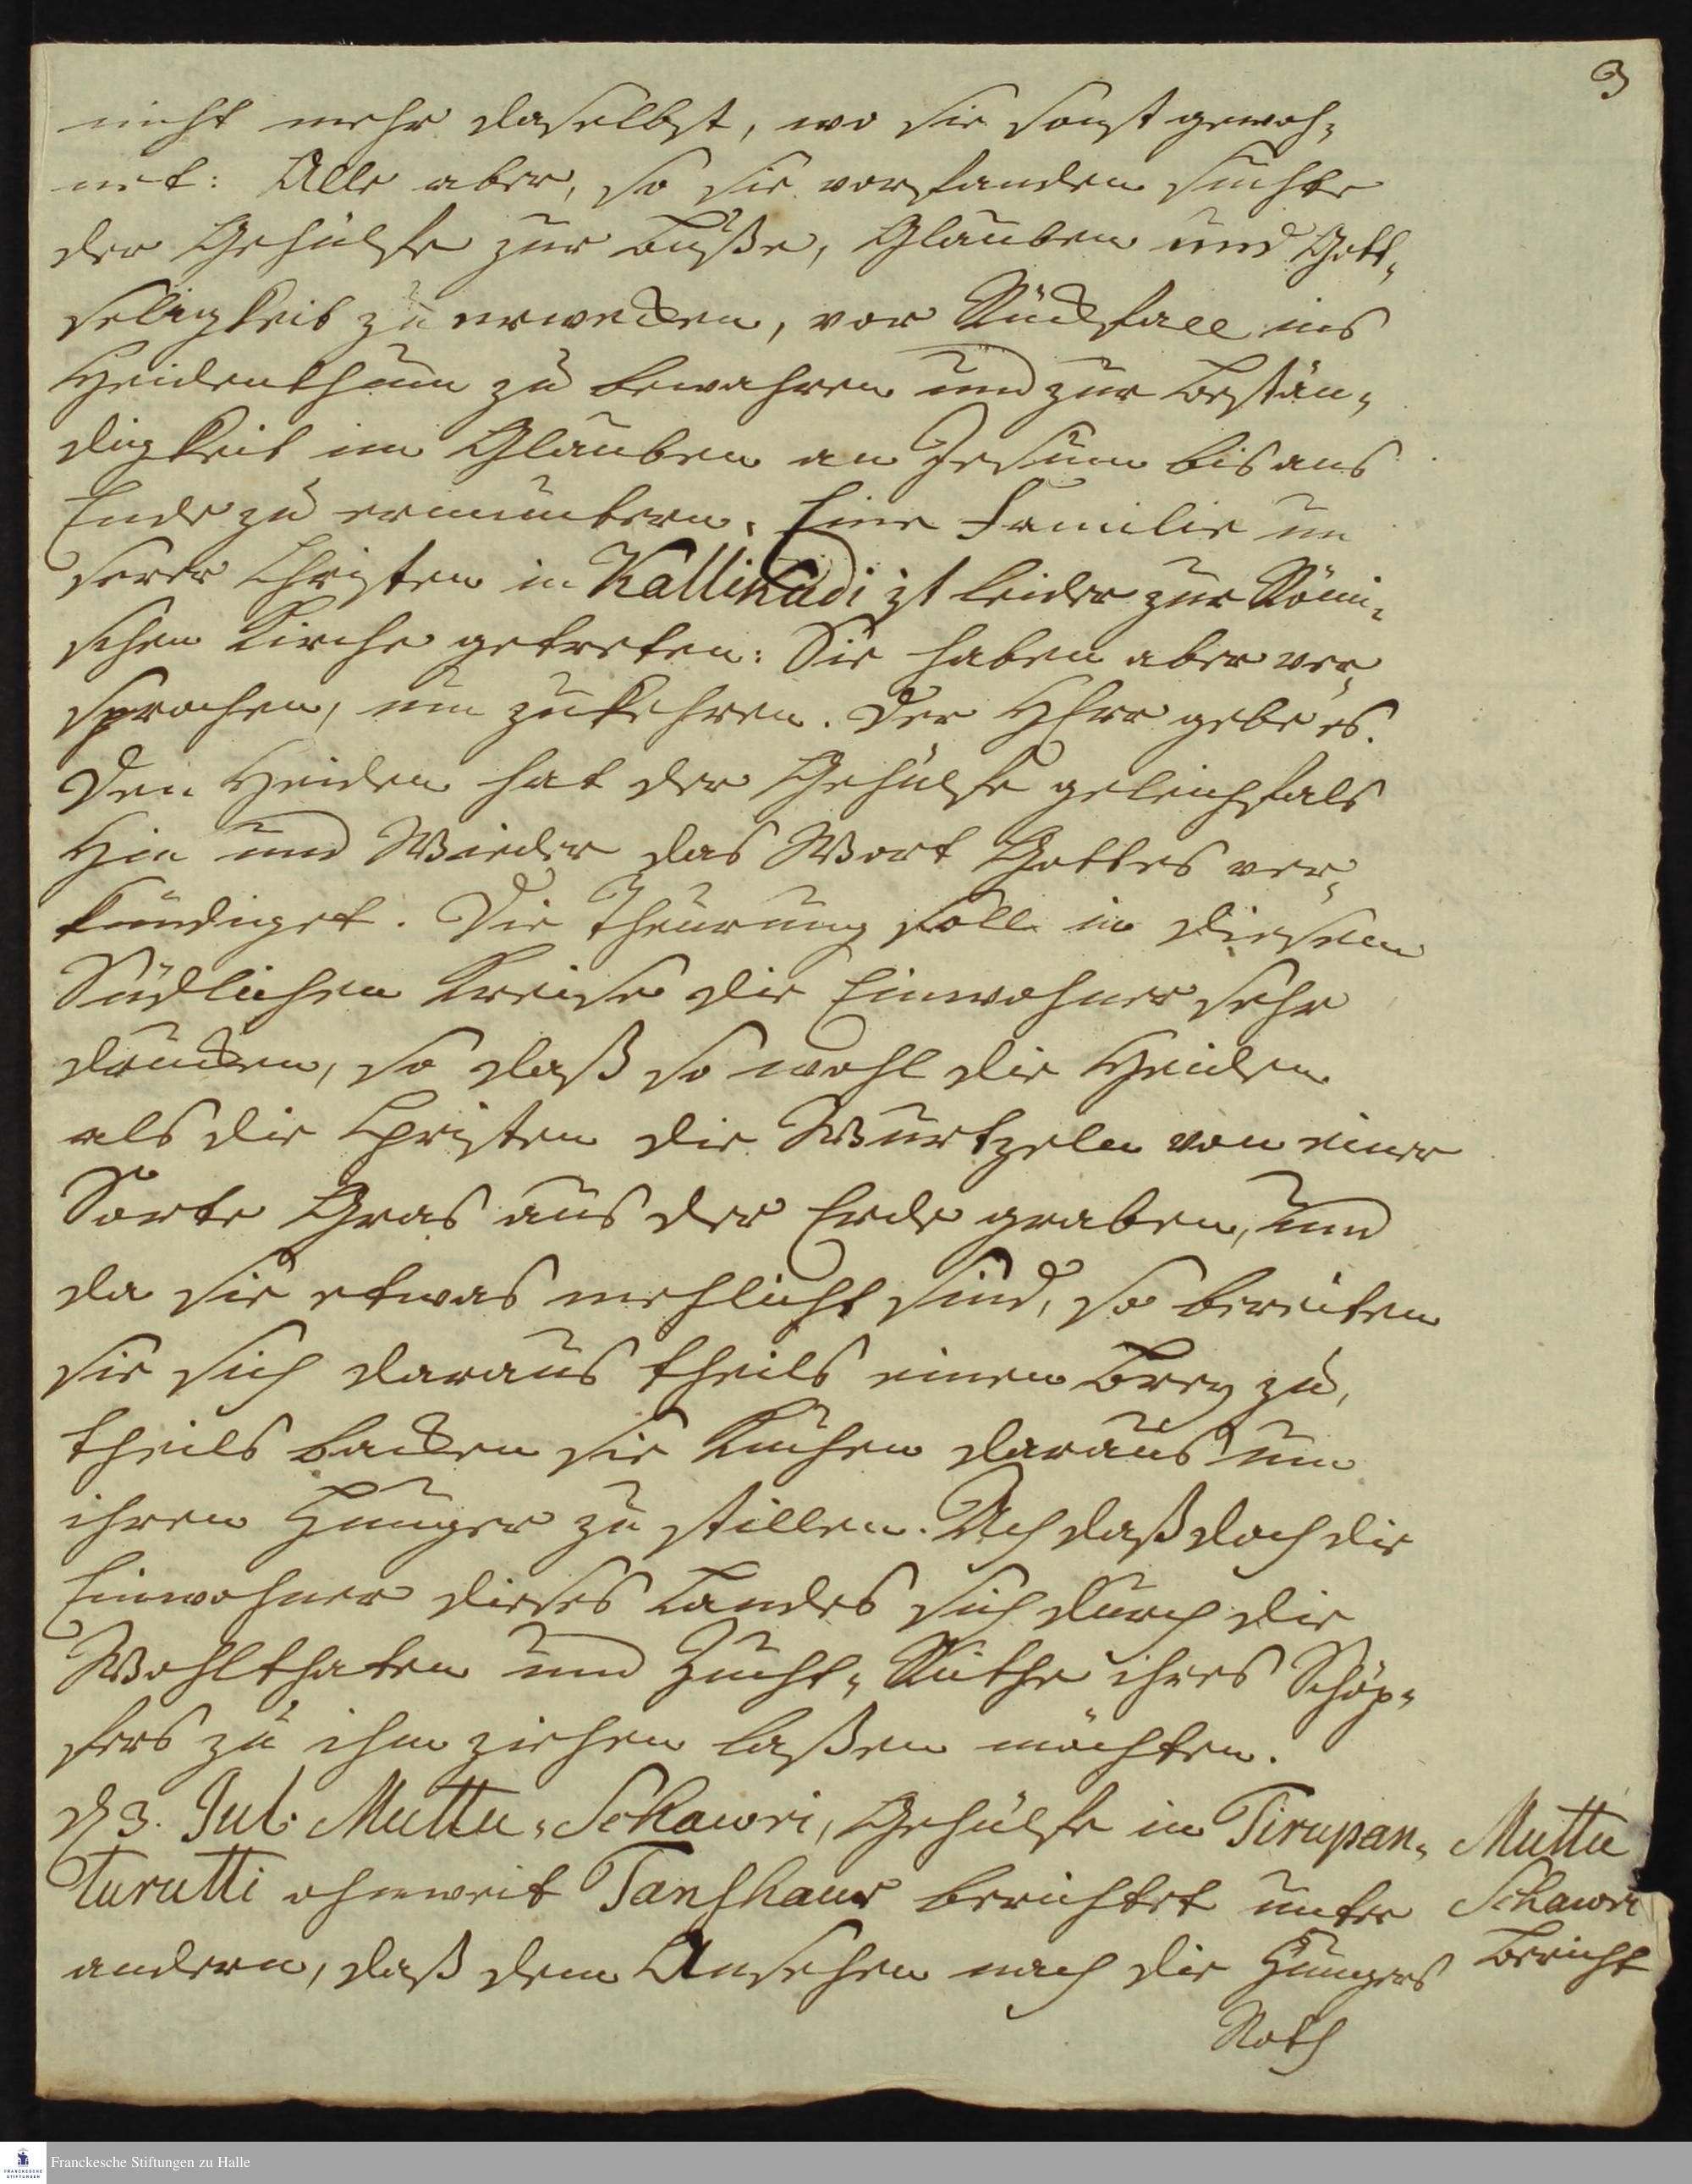 3
nicht mehr daselbst, wo sie sonst gewoh-
net: Alle aber, so sie vorfanden suchte
der Gehülfe zur Buße, Glauben und Gott-
seligkeit zu erwecken, vor Rückfall ins
Heidenthum zu bewahren und zur Bestän-
digkeit im Glauben an Jesum bis ans
Ende zu ermuntern. Eine Familie un
serer Christen in Kallikudi ist leider zur Römi-
schen Kirche getreten: Sie haben aber ver-
sprochen, um zukehren. Der HErr gebe es.
Den Heiden hat der Gehülfe geleichfals
Hin und Wieder das Wort Gottes ver-
kündiget. Die Theurung soll in diesem
Südlichen Kreise die Einwohner sehr
drucken, so daß so wohl die Heiden
als die Christen die Wurtzeln von einer
Sorte Gras aus der Erde graben, und
da sie etwas mehlicht sind, so bereiten
sie sich daraus theils einen Brey zu,
theils backen sie Kuchen daraus um
ihren Hunger zu stillen. Ach daß doch die
Einwohner dieses Landes sich durch die
Wohlthaten und Zucht-Ruthe ihres Schöp-
fers zu ihm ziehen laßen möchten.
d 3. Jul. Muttu-Schawri, Gehülfe in Tirupan-
turutti ohnweit Tanschaur berichtet unter
andern, daß dem Ansehen nach die Hungers
Noth
Muttu
Schawri
Bericht
Franckesche Stiftungen zu Halle
FRANCKESCHE
STIFTUNGEN